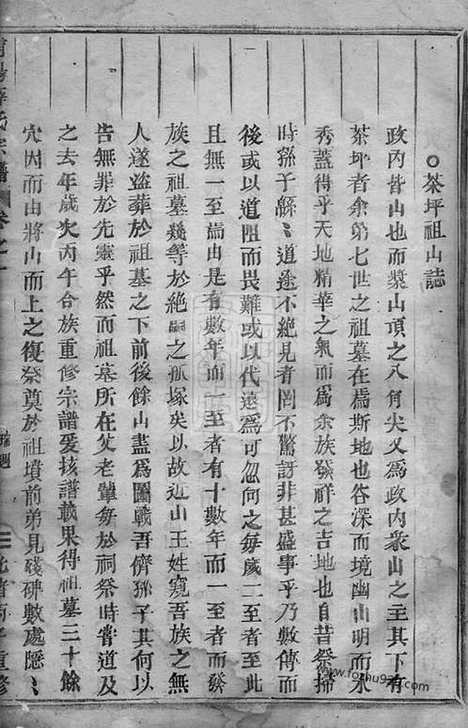 茶坪祖山誌
政內皆山也而漿山頂之八角尖又爲政內衆山之主其下有
茶坪者余第七世之祖墓在焉斯地也谷深而境幽山明而水
秀蓋得乎天地精華之氣而爲余族發祥之吉地也自昔祭掃
時孫子繇繇道途不絕見者罔不驚訝非甚盛事乎乃數傳而
後或以道阻而畏難或以代遠爲可忽向之每歲二至者
且無一至焉由是有數年而一至者有十數年而一至者吾
族之祖墓幾等於絕嗣之孤塚矣以故近山王姓窺吾族之無
人遂盜葬於祖墓之下前後餘山盡爲圖戩吾儕孫子其何以
告無罪於先靈乎然而祖墓所在父老輩每於祠祭時嘗道及
之去年歲次丙午合族重修宗譜爰核譜載果得祖墓三十餘
穴因而由將山而上之復祭奠於祖墳前弟見殘碑數處隱隱
氏宗譜 卷之一
重修
www.foshu920.com